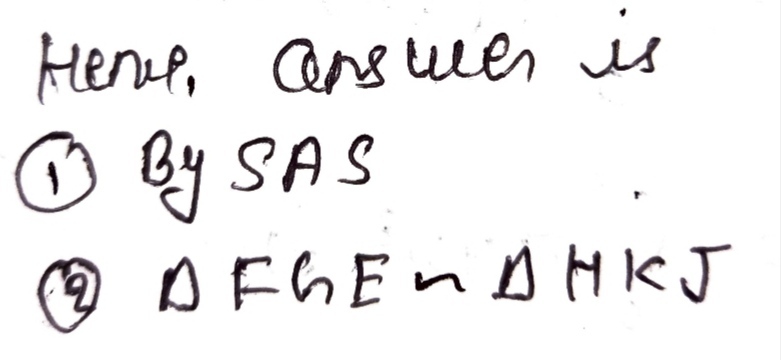 Hence, answer is
① By SAS
② Δ FGE ~ Δ HKJ